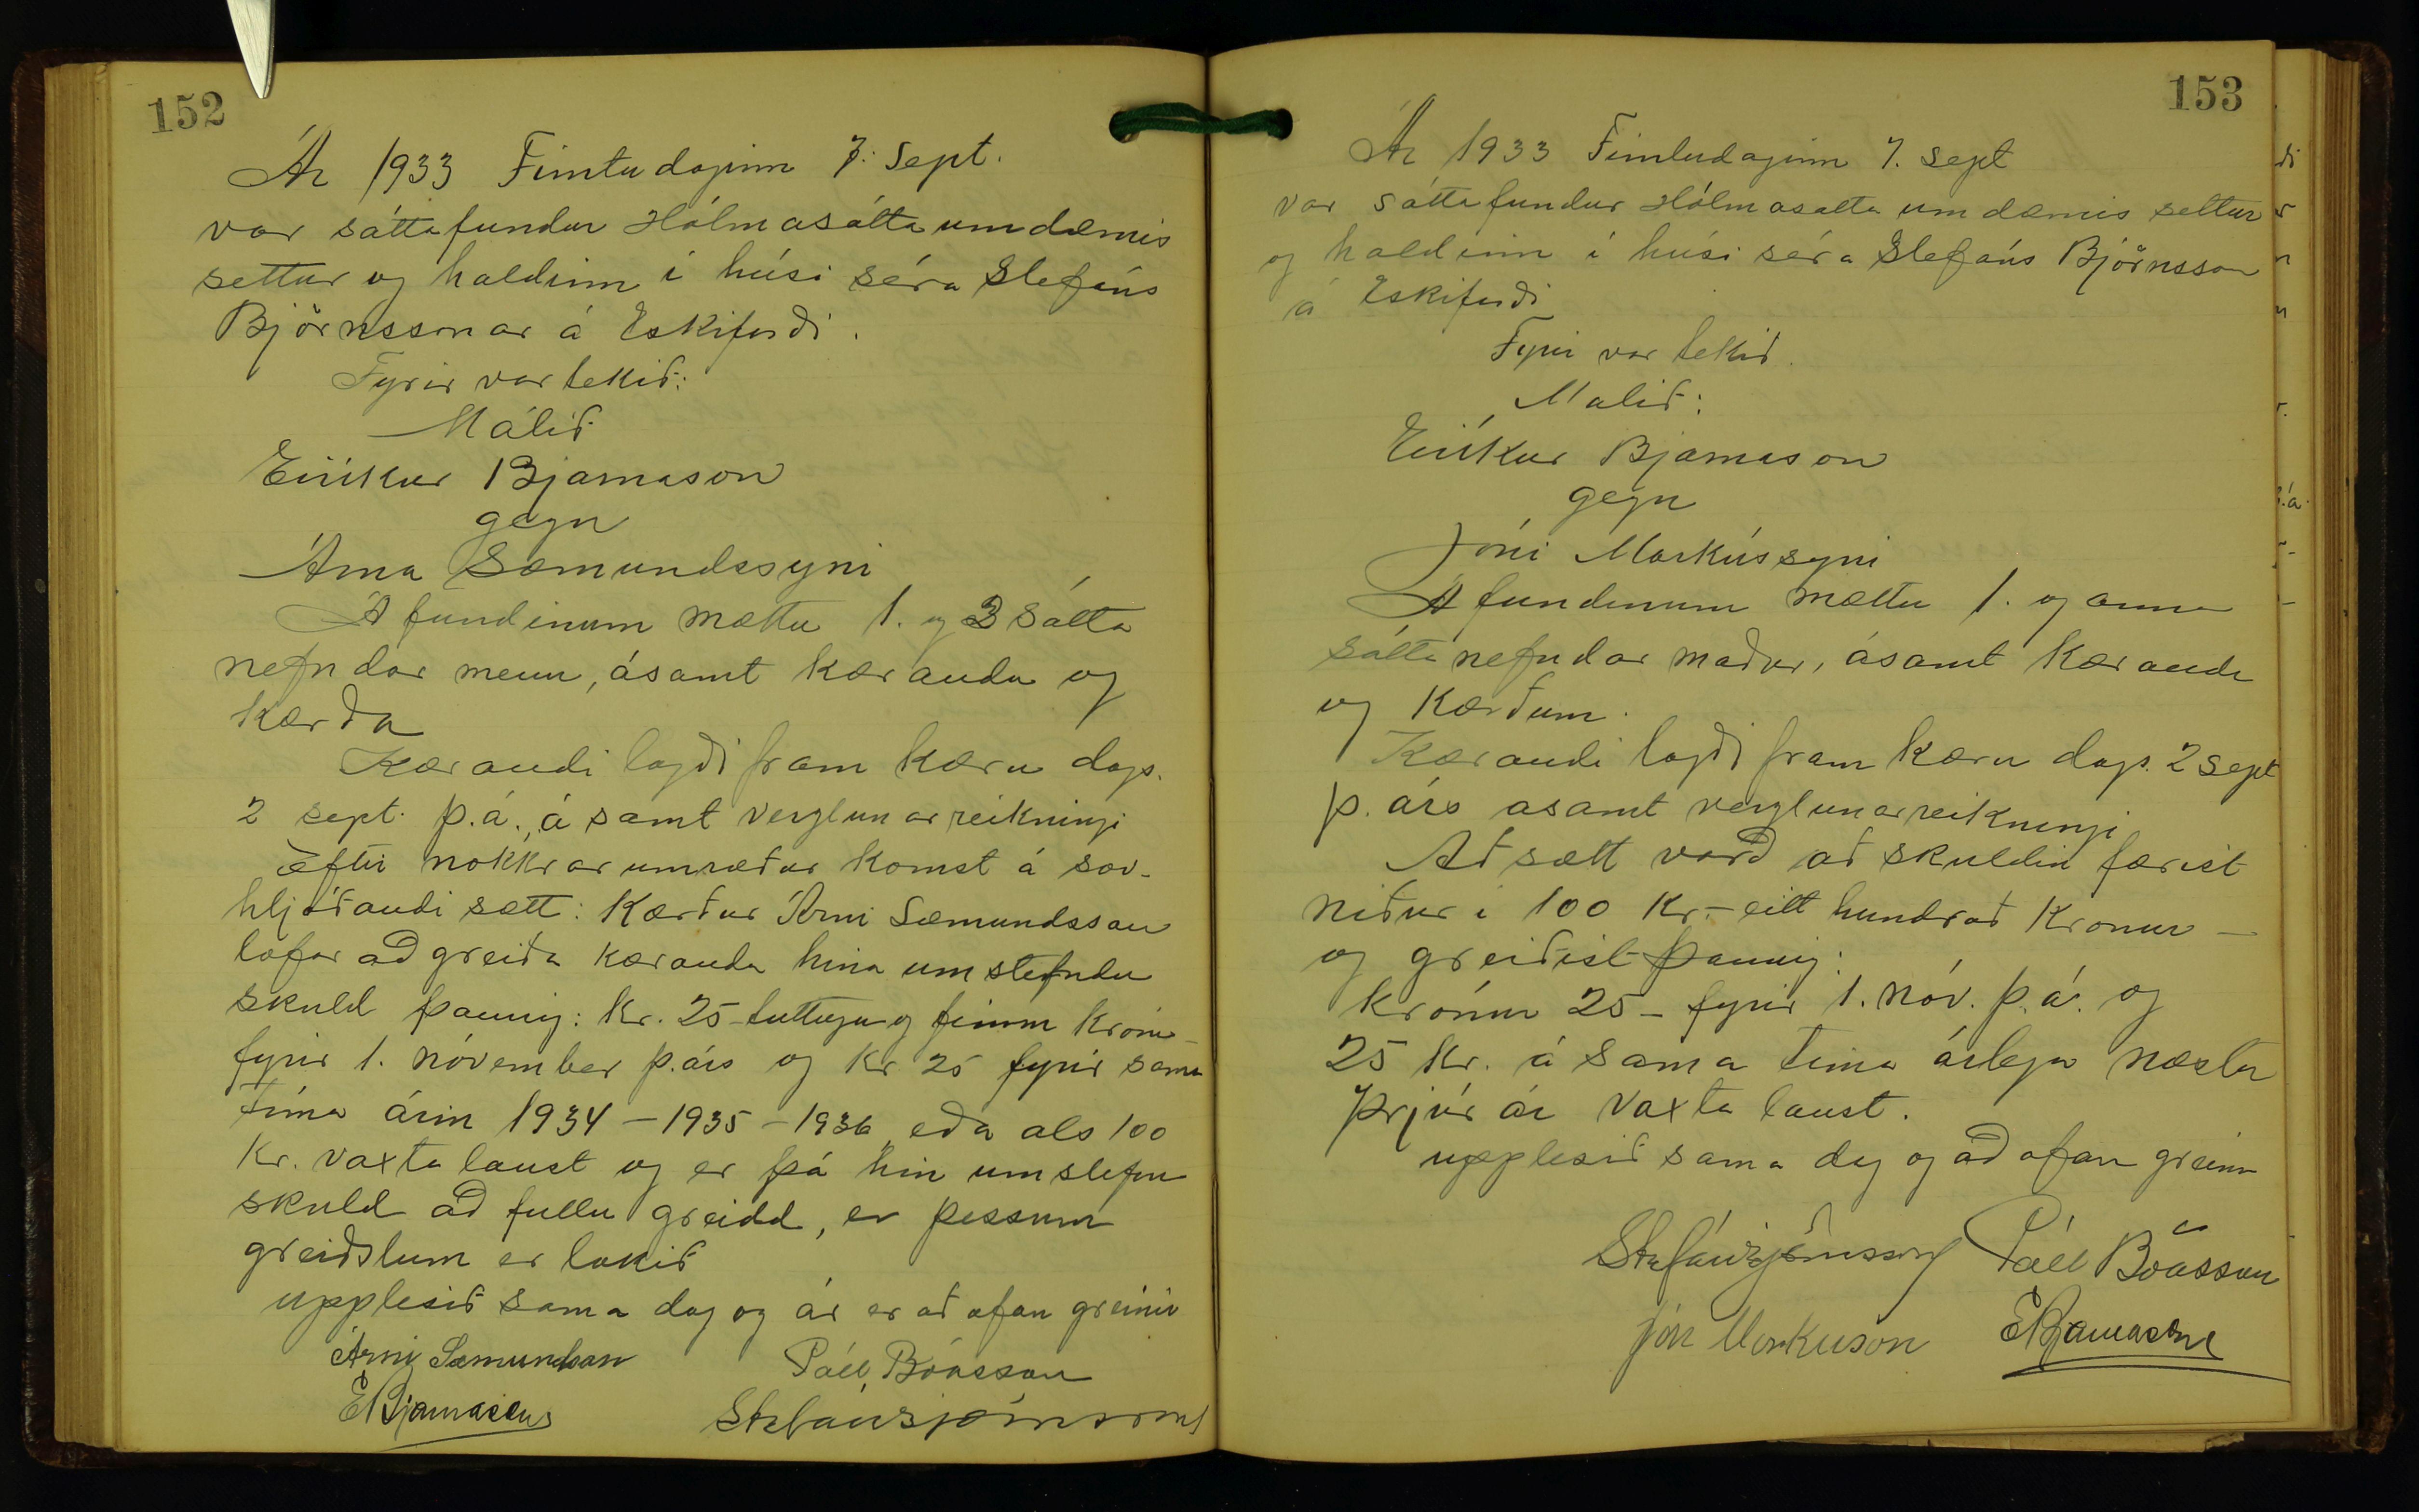 152
Ár 1933 Fimtudaginn 7. Sept.
var sáttafundur Hólmasáttaumdæmis
settur og haldinn i húsi séra Stefáns
Björnssonar á Eskifirði.
Fyrir var tekið:
Málið
Eirikur Bjarnason
gegn
Árna Sæmundssyni
Á fundinum mættu 1. og 3 sátta
nefndar menn, ásamt kæranda og
kærða
Kærandi lagði fram kæru dags.
2 sept. þ.á., ásamt verzlunarreikningi
Eftir nokkrar umræður komst á svo-
hljóðandi sætt: Kærður Árni Sæmundsson
lofar að greiða kæranda hina umstefndu
skuld þannig: Kr. 25 - tuttugu og fimm krónu-
fyrir 1. nóvember þ.árs og Kr 25 fyrir sama
tíma árin 1934 - 1935 - 1936, eða als 100
Kr. vaxta laust og er þá hin umstefnu
skuld að fullu greidd, er þessum
greiðslum er lokið
upplesið sama dag og ár er að ofan greinir
Árni Sæmundsson Páll Bóasson
EBjarnason Stefán Björnsson
153
Ár 1933 Fimtudaginn 7. sept
var sáttafundur Hólmasatta umdæmis settur
og haldinn i húsi séra Stefáns Björnsson
á Eskifirði
Fyrir var tekið.
Malið:
Eirikur Bjarnason
gegn
Jóni Markússyni
Á fundinum mættu 1. og annar
sátta nefndar maður, ásamt kæranda
og kærðum.
Kærandi lagði fram kæru dags. 2 sept
þ. árs asamt verzlunarreikningi
Að sætt varð að skuldin færist
niður i 100 Kr. - eitt hundrað Kronur -
og greiðist þannig:
krónur 25 - fyrir 1. nóv. þ.á. og
25 Kr. á sama tima árlega næstu
þrjúr ár vaxta laust.
upplesið sama dag og að ofan greinir
Stefán Björnsson Páll Bóasson
Jón Markuson EBjarnason